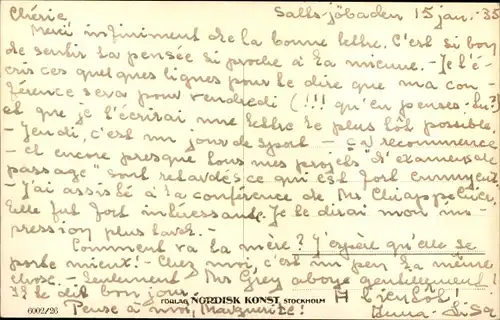 Chérie Salts-jöbaden 15 jan. 35
Merci infiniment de la bonne lettre. C'est si bon
de sentir ta pensée si proche à la mienne. - Je t'é-
cris ces quelques lignes pour te dire que ma con
férence sera pour vendredi (!!! qu'en penses-tu?)
et que je t'écrirai une lettre le plus tôt possible
- Jeudi, c'est un jour de sport - ça recommence
- et encore presque tous mes projets "d'examens de
passage" sont retardés ce qui est fort ennuyeux
- J'ai assisté à la conférence de Mr Chiappe
Elle fut fort intéressante. Je te dirai mon im-
pression plus tard. -
Comment va ta mère? J'espère qu'elle se
porte mieux! - Chez moi, c'est un peu la même
chose. - Seulement Mr Grey aboye gentillement!
Il te dit bon jour. A bientôt!
Pense à moi, Marguerite!
FÖRLAG NORDISK KONST STOCKHOLM
6002/26